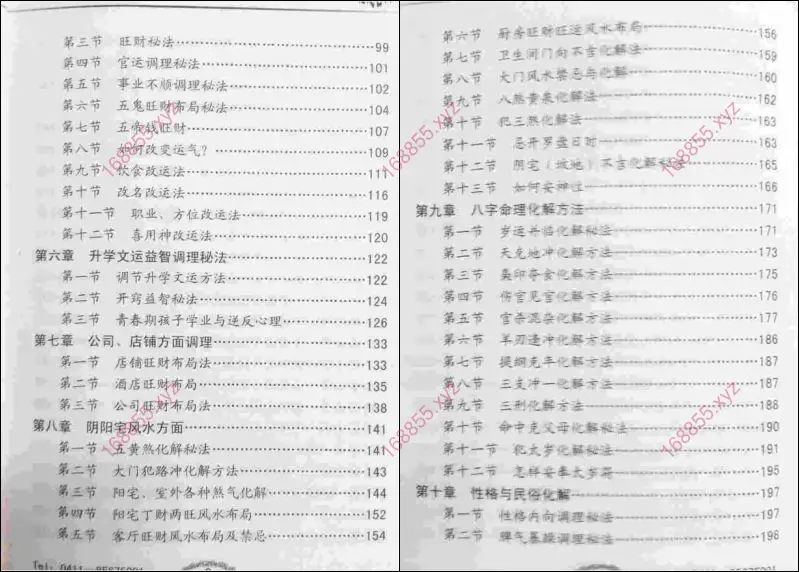 第三节 旺财秘法 99
第四节 官运调理秘法 101
第五节 事业不顺调理秘法 102
第六节 五鬼旺财布局秘法 104
第七节 五帝钱旺财 107
第八节 如何改变运气? 109
第九节 饮食改运法 111
第十节 改名改运法 116
第十一节 职业、方位改运法 119
第十二节 喜用神改运法 120
第六章 升学文运益智调理秘法 122
第一节 调节升学文运方法 122
第二节 开窍益智秘法 124
第三节 青春期孩子学业与逆反心理 126
第七章 公司、店铺方面调理 133
第一节 店铺旺财布局法 133
第二节 酒店旺财布局 135
第三节 公司旺财布局法 138
第八章 阴阳宅风水方面 141
第一节 五黄煞化解秘法 141
第二节 大门犯路冲化解方法 143
第三节 阳宅、室外各种煞气化解 144
第四节 阳宅丁财两旺风水布局 152
第五节 客厅旺财风水布局及禁忌 154
第六节 厨房旺财旺运风水布局 156
第七节 卫生间门向不吉化解法 159
第八节 大门风水禁忌与化解 160
第九节 八煞黄泉化解法 162
第十节 犯三煞化解法 163
第十一节 忌开罗盘日时 163
第十二节 阴宅(坟地)不吉化解秘法 165
第十三节 如何安神位 166
第九章 八字命理化解方法 171
第一节 岁运并临化解秘法 171
第二节 天克地冲化解方法 173
第三节 枭印夺食化解方法 175
第四节 伤官见官化解方法 176
第五节 官杀混杂化解方法 177
第六节 羊刃逢冲化解方法 186
第七节 提纲克年化解方法 187
第八节 三支冲一化解方法 187
第九节 三刑化解方法 188
第十节 命中克父母化解秘法 190
第十一节 犯太岁化解秘法 191
第十二节 怎样安奉太岁符 195
第十章 性格与民俗化解 197
第一节 性格内向调理秘法 197
第二节 脾气暴躁调理秘法 198
168855.xyz
168855.xyz
168855.xyz
168855.xyz